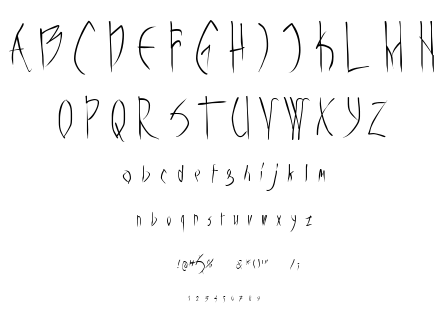 A B C D E F G H I J K L M N
O P Q R S T U V W X Y Z
a b c d e f g h i j k l m
n b o q r s t u v w x y z
! @ # % & * ( ) " " / ;
1 2 3 4 5 6 7 8 9